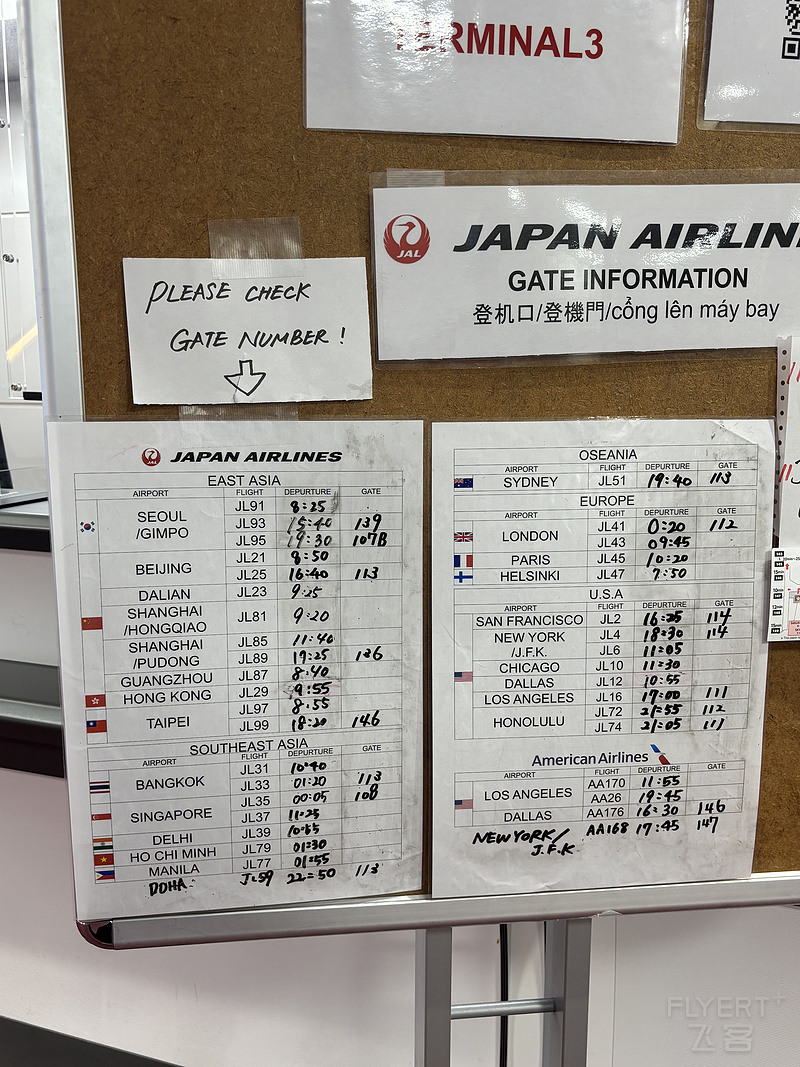 TERMINAL3
JAL JAPAN AIRLIN
GATE INFORMATION
登机口/登機門/cổng lên máy bay
PLEASE CHECK
GATE NUMBER!
JAPAN AIRLINES
EAST ASIA
AIRPORT FLIGHT DEPURTURE GATE
SEOUL /GIMPO JL91 8:25
JL93 15:40 139
JL95 19:30 107B
BEIJING JL21 8:50
JL25 16:40 113
DALIAN JL23 9:25
SHANGHAI /HONGQIAO JL81 9:20
SHANGHAI /PUDONG JL85 11:40
JL89 19:25 136
GUANGZHOU JL87 8:40
HONG KONG JL29 9:55
TAIPEI JL97 8:55
JL99 18:20 146
SOUTHEAST ASIA
AIRPORT FLIGHT DEPURTURE GATE
BANGKOK JL31 10:40
JL33 01:20 113
SINGAPORE JL35 00:05 108
JL37 11:25
DELHI JL39
HO CHI MINH JL79 01:30
MANILA JL77 01:55
DOHA JL59 22:50 113
OSEANIA
AIRPORT FLIGHT DEPURTURE GATE
SYDNEY JL51 19:40 113
EUROPE
AIRPORT FLIGHT DEPURTURE GATE
LONDON JL41 0:20 112
JL43 09:45
PARIS JL45 10:20
HELSINKI JL47 7:50
U.S.A
AIRPORT FLIGHT DEPURTURE GATE
SAN FRANCISCO JL2 16:25 114
NEW YORK /J.F.K. JL4 18:30 114
JL6 11:05
CHICAGO JL10 11:30
DALLAS JL12 10:55
LOS ANGELES JL16 17:00 111
HONOLULU JL72 21:55 112
JL74 21:05 111
American Airlines
AIRPORT FLIGHT DEPURTURE GATE
LOS ANGELES AA170 11:55
AA26 19:45
DALLAS AA176 16:30 146
NEW YORK/ J.F.K AA168 17:45 147
FLYERT+
飞客